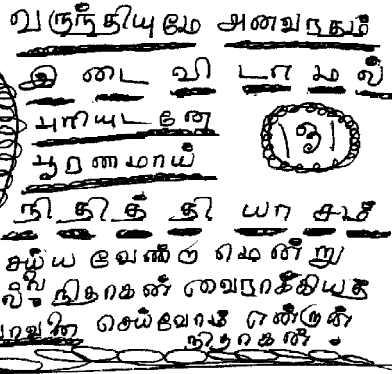 வருந்தியுமே அனவரதமும்
இடைவிடாமல்
புரியுடனே
பூரணமாய்
நிதித்தியாசம்
செய்ய வேண்டு மென்று
நிதாகன் வைராக்கியத்
செய்வோம் என்றான்
நிதாகன்.